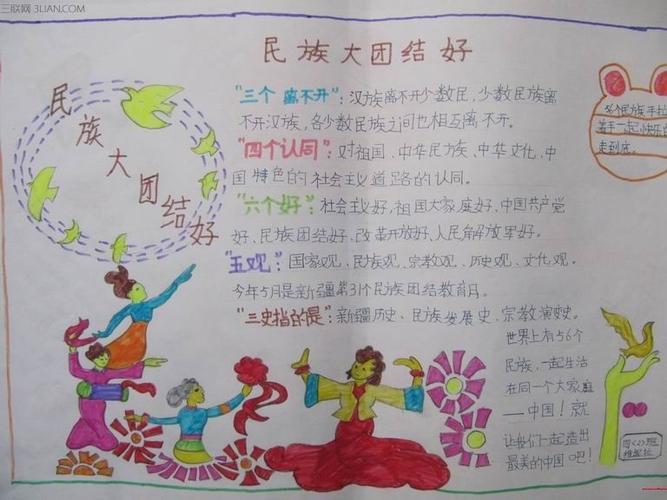 三联网 3LIAN.COM
民族大团结好
民族大团结好
"三个离不开"：汉族离不开少数民，少数民族离
不开汉族，各少数民族之间也相互离不开。
"四个认同"：对祖国、中华民族、中华文化、中
国特色的社会主义道路的认同。
"六个好"：社会主义好，祖国大家庭好、中国共产党
好、民族团结好、改革开放好、人民解放军好。
"五观"：国家观、民族观、宗教观、历史观、文化观。
今年5月是新疆第31个民族团结教育月。
"三史指的是"：新疆历史、民族发展史、宗教演变史。
世界上有56个
民族，一起生活
在同一个大家庭
——中国！就
让我们一起造出
最美的中国吧！
各个民族手拉
着手一起快乐
走到底。
四(2)班